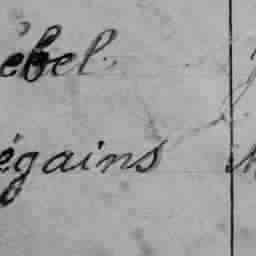 ébel.
égains